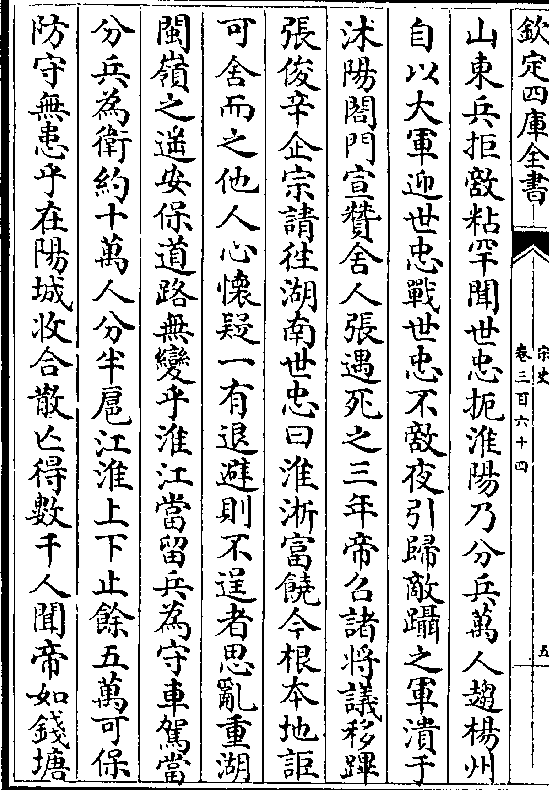 欽定四庫全書
宋史
卷三百六十四
五
山東兵拒敵粘罕聞世忠扼淮陽乃分兵萬人趨楊州
自以大軍迎世忠戰世忠不敵夜引歸敵躡之軍潰于
沭陽閤門宣贊舍人張遇死之三年帝召諸將議移蹕
張俊辛企宗請往湖南世忠曰淮浙富饒今根本地詎
可舍而之他人心懷疑一有退避則不逞者思亂重湖
閩嶺之遥安保道路無變乎淮江當留兵為守車駕當
分兵為衛約十萬人分半扈江淮上下止餘五萬可保
防守無患乎在陽城收合散亡得數千人聞帝如錢塘